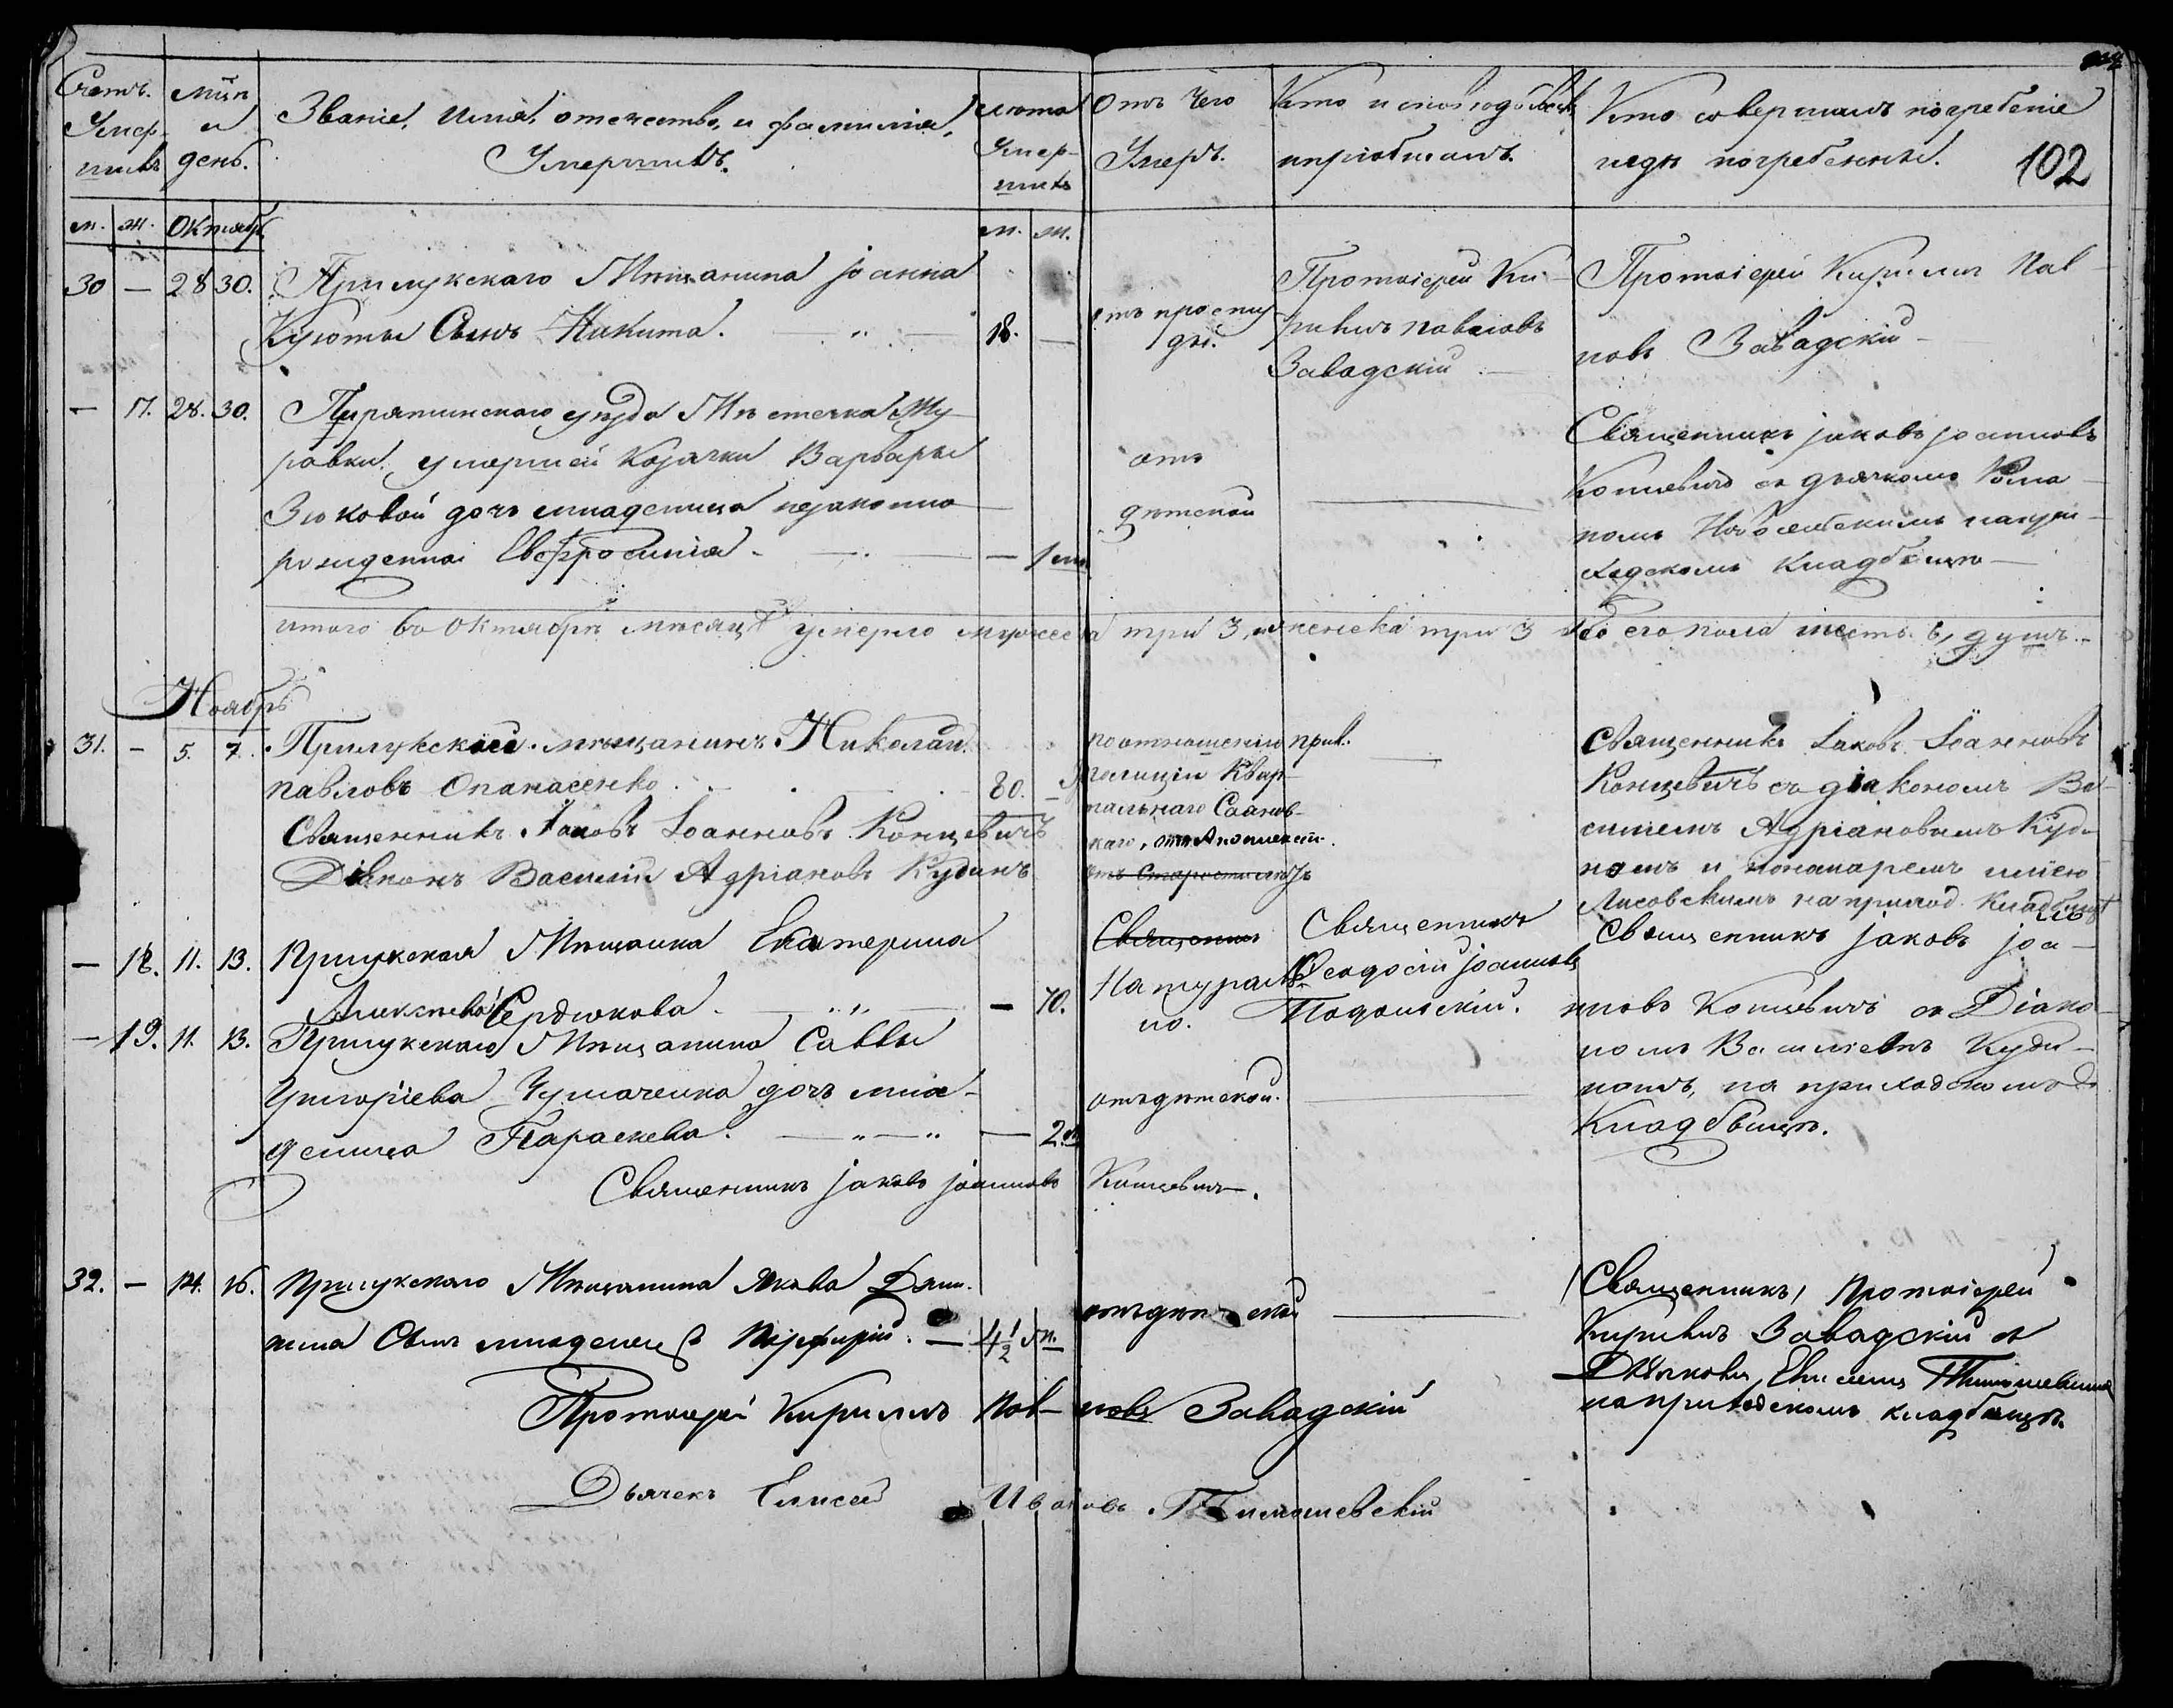 Счетъ Умершихъ
Мцъ и день.
Званіе, имя, отечество, и фамилія, Умершихъ.
Лѣта Умершихъ
Отъ чего Умеръ.
Кто исповѣдывалъ и пріобщалъ.
Кто совершалъ погребеніе и гдѣ погребенны.
102
м. ж. Октябрь м. ж.
30 — 28 30. Прилукскаго Мѣщанина Іоанна
сынъ Никита. — 18. —
отъ простуды.
Протоіерей Кирилъ Павловъ Завадскій —
Протоіерей Кирилъ Павловъ Завадскій —
— 17. 28. 30. Пирятинскаго уѣзда Мѣстечка Журавки, умершей козачки Варвары
Зюковой дочь младеница незаконно
рожденная Евфросинія. — — 1
отъ дѣтской
Священникъ Іаковъ Іоанновъ
Концевичъ съ дьячкомъ Романомъ
на приходскомъ кладбищѣ —
итого въ Октябрѣ мѣсяцѣ умерло мужеска три 3, женска три 3 обоего пола шесть 6, душъ. —
Ноябрь
31. — 5. 7. Прилукскій мѣщанинъ Николай
Павловъ Опанасенко. 80. —
Священникъ Іаковъ Іоанновъ Концевичъ
Діаконъ Василій Адріановъ Кудинъ
по отношенію прил.
полиціи Квартальнаго
отъ Апоплексіи.
отъ Старости
Священникъ Іаковъ Іоанновъ
Концевичъ съ діакономъ Василіемъ Адріановымъ Кудиномъ и пономаремъ
Лисовскимъ на приход. Кладбищѣ
— 18. 11. 13. Прилукская Мѣщанка Екатерина
Алексѣева Сердюкова. — — 70.
Священникъ
Натурально.
Священникъ
Ѳеодосій Іоанновъ
Подольскій.
Священникъ Іаковъ Іоанновъ Концевичъ съ Діакономъ Василіемъ Кудиномъ, на приходскомъ
Кладбищѣ.
— 19. 11. 13. Прилукскаго Мѣщанина Саввы
Григоріева Чумаченка дочь младеница Параскева. — — 2.
отъ дѣтской. —
Священникъ Іаковъ Іоанновъ Концевичъ.
32. — 14. 16. Прилукскаго Мѣщанина Якова
сынъ младенецъ Порфирій. — 4½
отъ дѣтской —
Священникъ, Протоіерей
Кирилъ Завадскій съ
Дьячкомъ Елисеемъ Тимошевскимъ
на приходскомъ кладбищѣ.
Протоіерей Кириллъ Павловъ Завадскій
Дьячекъ Елисей Ивановъ Тимошевскій